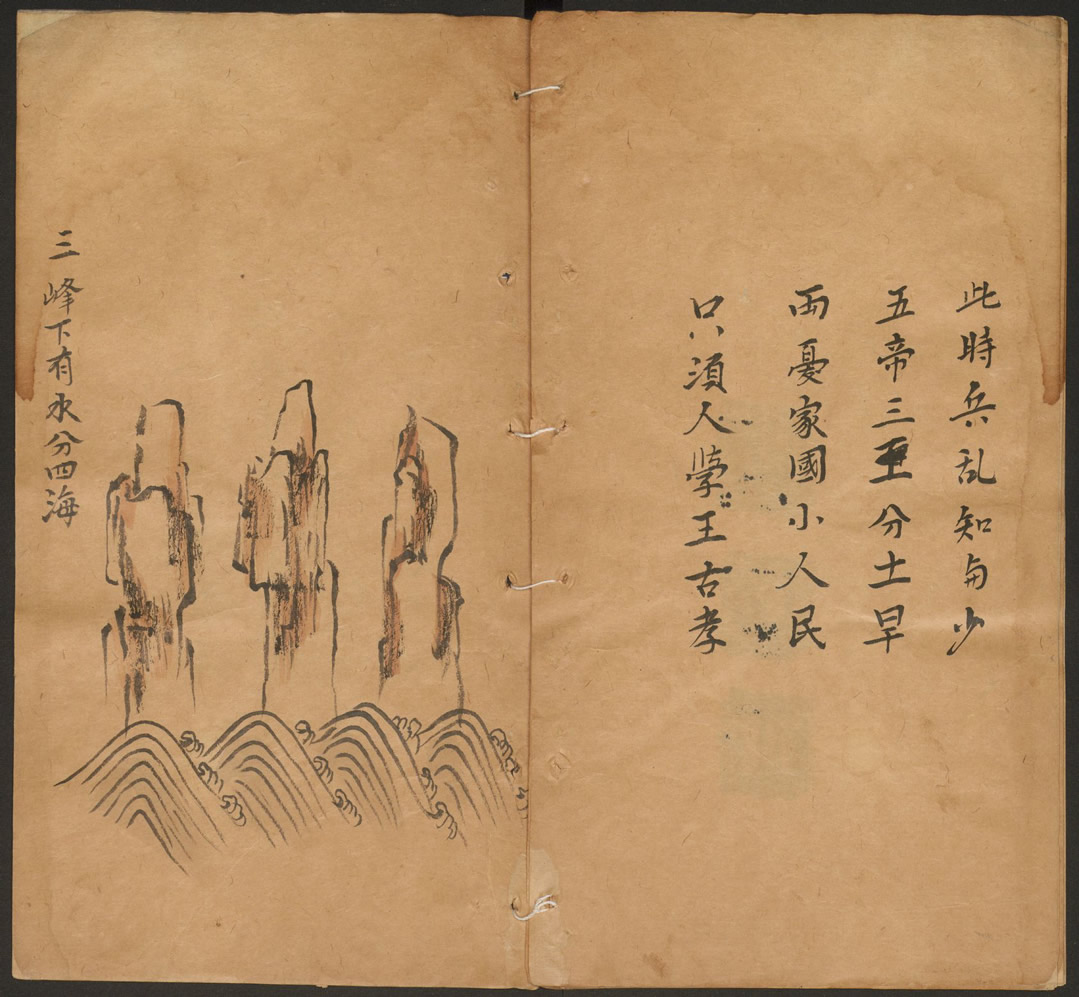 此時兵乱知多少
五帝三王分土旱
両憂家國小人民
只須人學王古孝
三峰下有水分四海